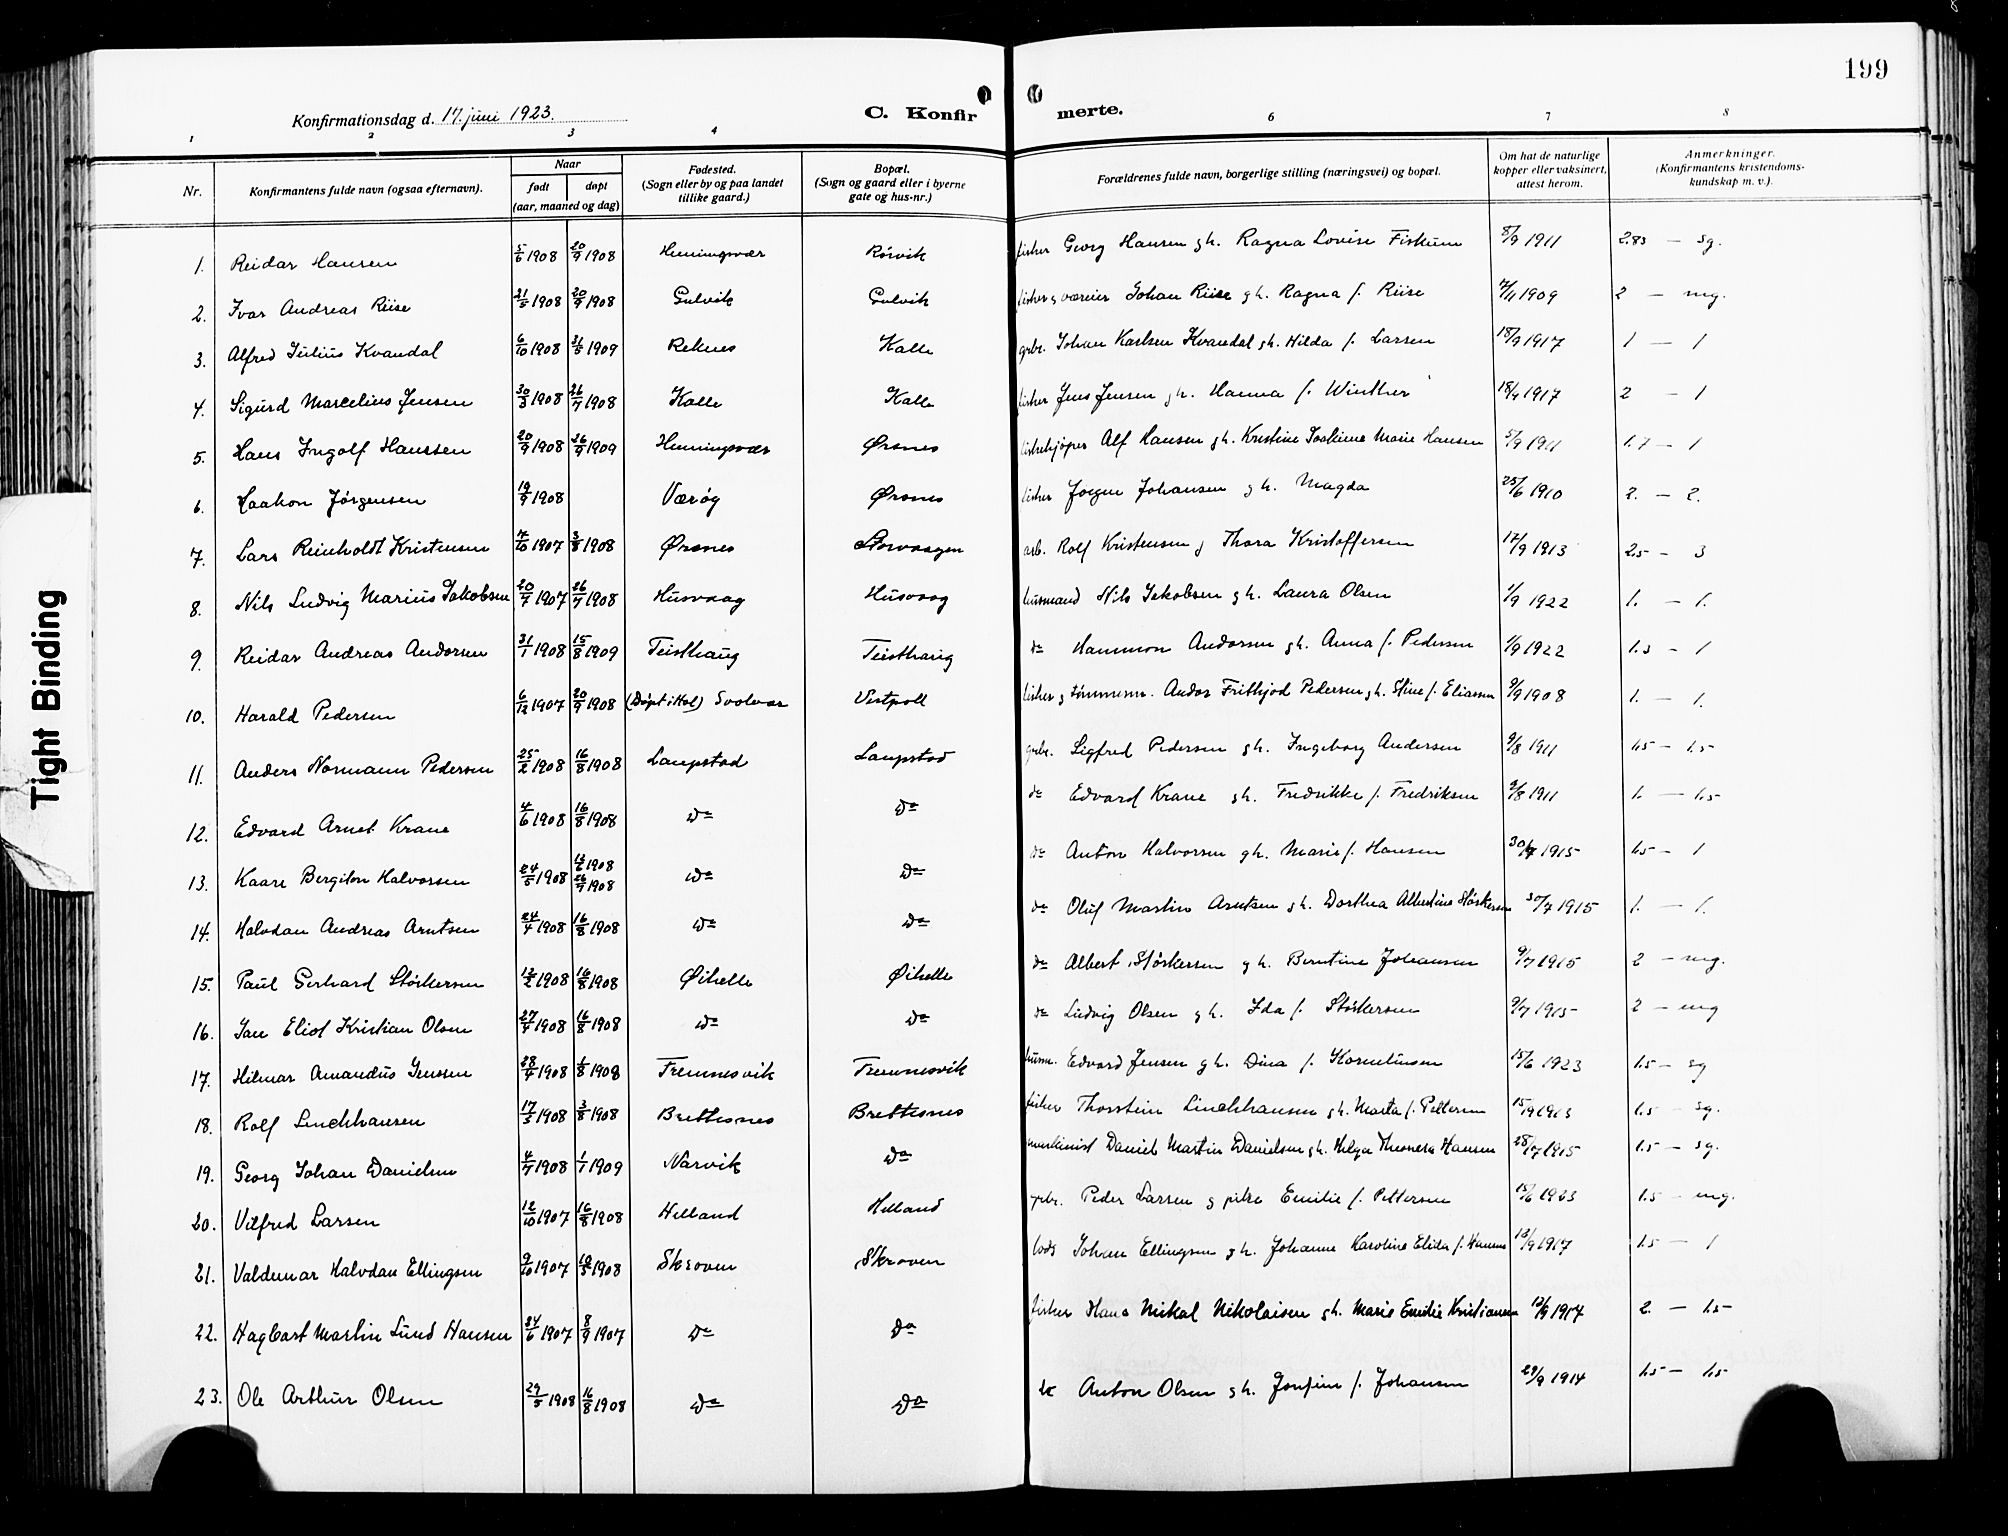 199
Konfirmationsdag d. 17. juni 1923.
C. Konfirmerte.
1 2 3 4 6 7 8
Nr. | Konfirmantens fulde navn (ogsaa efternavn). | Naar født døpt (aar, maaned og dag) | Fødested. (Sogn eller by og paa landet tillike gaard.) | Bopæl. (Sogn og gaard eller i byerne gate og hus-nr.) | Forældrenes fulde navn, borgerlige stilling (næringsvei) og bopæl. | Om hat de naturlige kopper eller vaksinert, attest herom. | Anmerkninger. (Konfirmantens kristendomskundskap m. v.).
1. Reidar Hansen 5/6 1908 20/9 1908 Henningsvær Rørvik fisker Georg Hansen g h. Ragna Lovise Fiskum 8/9 1911 2.83 — sg.
2. Ivar Andreas Riise 21/5 1908 20/9 1908 Gulvik Gulvik fisker g væreier Johan Riise g h. Ragna f. Riise 7/11 1909 2 — mg.
3. Alfred Julius Kvandal 6/10 1908 31/5 1909 Reknes Kalle grbr. Johan Karlsen Kvandal g h. Hilda f. Larsen 18/9 1917 1 — 1
4. Sigurd Marcelius Jensen 30/3 1908 26/7 1908 Kalle Kalle fisker Jens Jensen g h. Hanna f. Winther 18/9 1917 2 — 1
5. Hans Ingolf Hanssen 20/9 1908 26/9 1909 Henningsvær Ørsnes fiskekjøper Alf Hansen g h. Kristine Joakime Marie Hansen 5/9 1911 1.7 — 1
6. Haakon Jørgensen 19/9 1908 Værøy Ørsnes fisker Jørgen Johansen g h. Magda 25/6 1910 2. — 2.
7. Lars Reinholdt Kristensen 7/10 1907 3/8 1908 Ørsnes Storvaagen arb. Rolf Kristensen g Thora Kristoffersen 17/9 1913 2.5 — 3
8. Nils Ludvig Marius Jakobsen 20/7 1907 26/7 1908 Husvaag Husvaag husmand Nils Jakobsen g h. Laura Olsen 1/9 1922 1. — 1.
9. Reidar Andreas Andorsen 31/1 1908 15/8 1909 Teisthaug Teisthaug do Hammon Andorsen g h. Anna f. Pedersen 1/9 1922 1.3 — 1
10. Harald Pedersen 6/12 1907 20/9 1908 (Døpt i Hol) Svolvær Vestpoll fisker g tømmerm. Andor Frithjod Pedersen g h. Stine f. Eliassen 9/9 1908 1. — 1.
11. Anders Normann Pedersen 25/2 1908 16/8 1908 Laupstad Laupstad grbr. Sigfred Pedersen g h. Ingeborg Andersen 9/8 1911 1.5 — 1.5
12. Edvard Arnet Krane 4/6 1908 16/8 1908 do do do Edvard Krane g h. Fredrikke f. Fredriksen 9/8 1911 1. — 1.5
13. Kaare Bergiton Halvorsen 24/5 1908 1908 26/7 1908 do do do Anton Halvorsen g h. Marie f. Hansen 30/7 1915 1.5 — 1
14. Halvdan Andreas Arntsen 24/4 1908 16/8 1908 do do do Oluf Martin Arntsen g h. Dorthea Albertine Størkersen 30/7 1915 1. — 1.
15. Paul Gerhard Størkersen 13/2 1908 16/8 1908 Øihelle Øihelle do Albert Størkersen g h. Berntine Johansen 9/7 1915 2 — mg.
16. Jan Eliot Kristian Olsen 27/4 1908 16/8 1908 do do do Ludvig Olsen g h. Ida f. Størkersen 9/7 1915 2 — mg
17. Hilmar Amandus Jenssen 28/4 1908 1/8 1908 Fremnesvik Fremnesvik husm. Edvard Jensen g h. Dina f. Korneliussen 15/6 1923 1.5 — sg
18. Rolf Linchhausen 17/5 1908 3/8 1908 Brettesnes Brettesnes fisker Thorstein Linchhausen g h. Marta f. Pettersen 15/9 1913 1.5 — sg.
19. Georg Johan Danielsen 4/7 1908 1/1 1909 Narvik do maskinist Daniel Martin Danielsen g h. Helga Theonera Hansen 28/7 1915 1.5 — sg.
20. Vilfred Larsen 12/10 1907 16/8 1908 Helland Helland grbr. Peder Larsen g pike Emilie f. Pettersen 15/6 1923 1.5 — mg.
21. Valdemar Halvdan Ellingsen 9/10 1907 10/5 1908 Skroven Skroven lods Johan Ellingsen g h. Johanne Karoline Elida f. Hansen 13/9 1917 1.5 — 1
22. Hagbart Martin Lund Hansen 24/6 1907 8/9 1907 do do fisker Hans Mikal Nikolaisen g h. Marie Emilie Kristiansen 13/9 1917 2. — 1.5
23. Ole Arthur Olsen 29/5 1908 16/8 1908 do do do Anton Olsen g h. Josefine f. Johansen 29/9 1914 1.5 — 1.5
Tight Binding